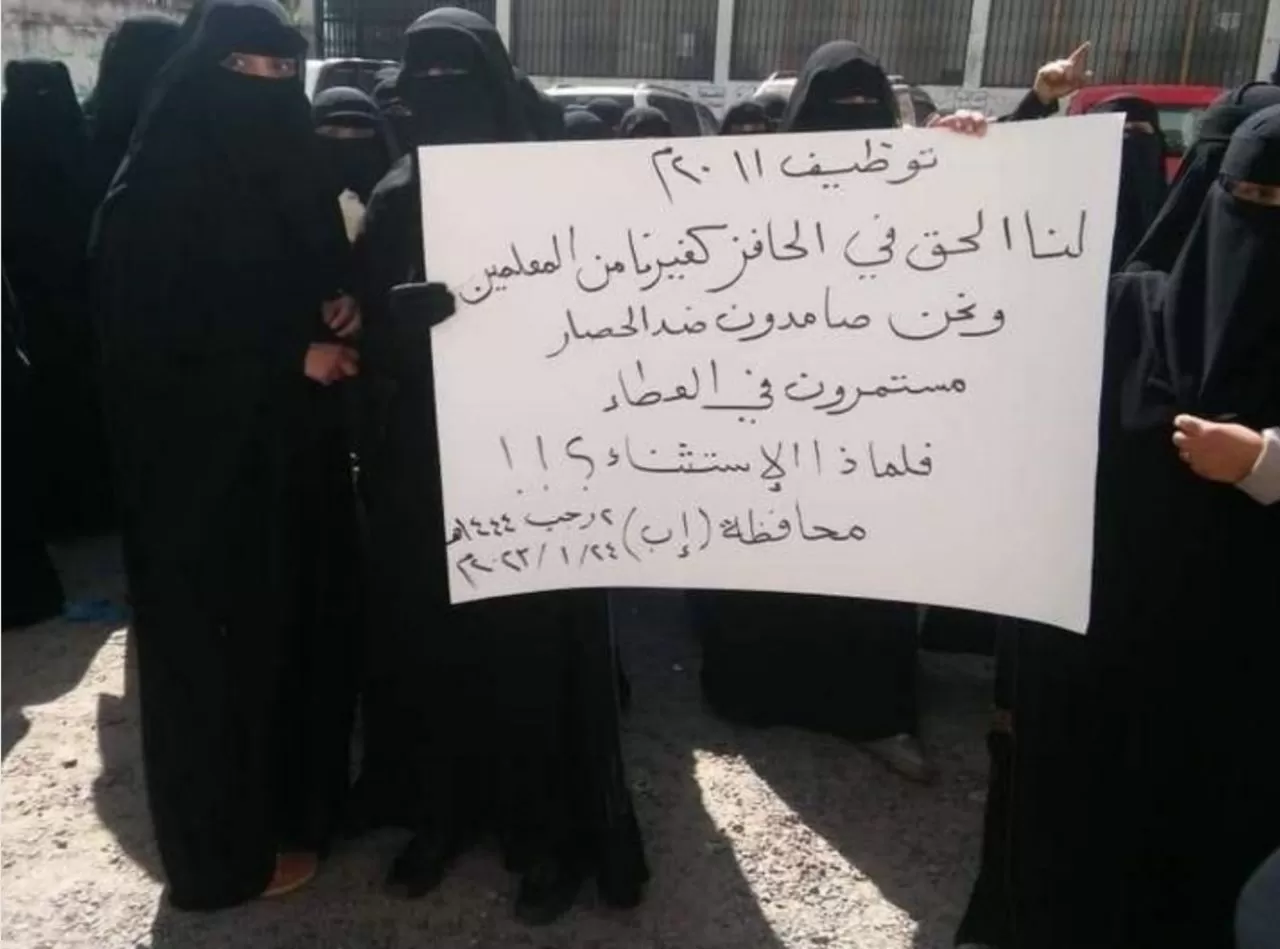 توظيف ٢٠١١م
لنا الحق في الحافز كغيرنا من المعلمين
ونحن صامدون ضد الحصار
مستمرون في العطاء
فلماذا الإستثناء ؟!!
محافظة (إب) ٢ رجب ١٤٤٤هـ
٢٠٢٣/١/٢٤م